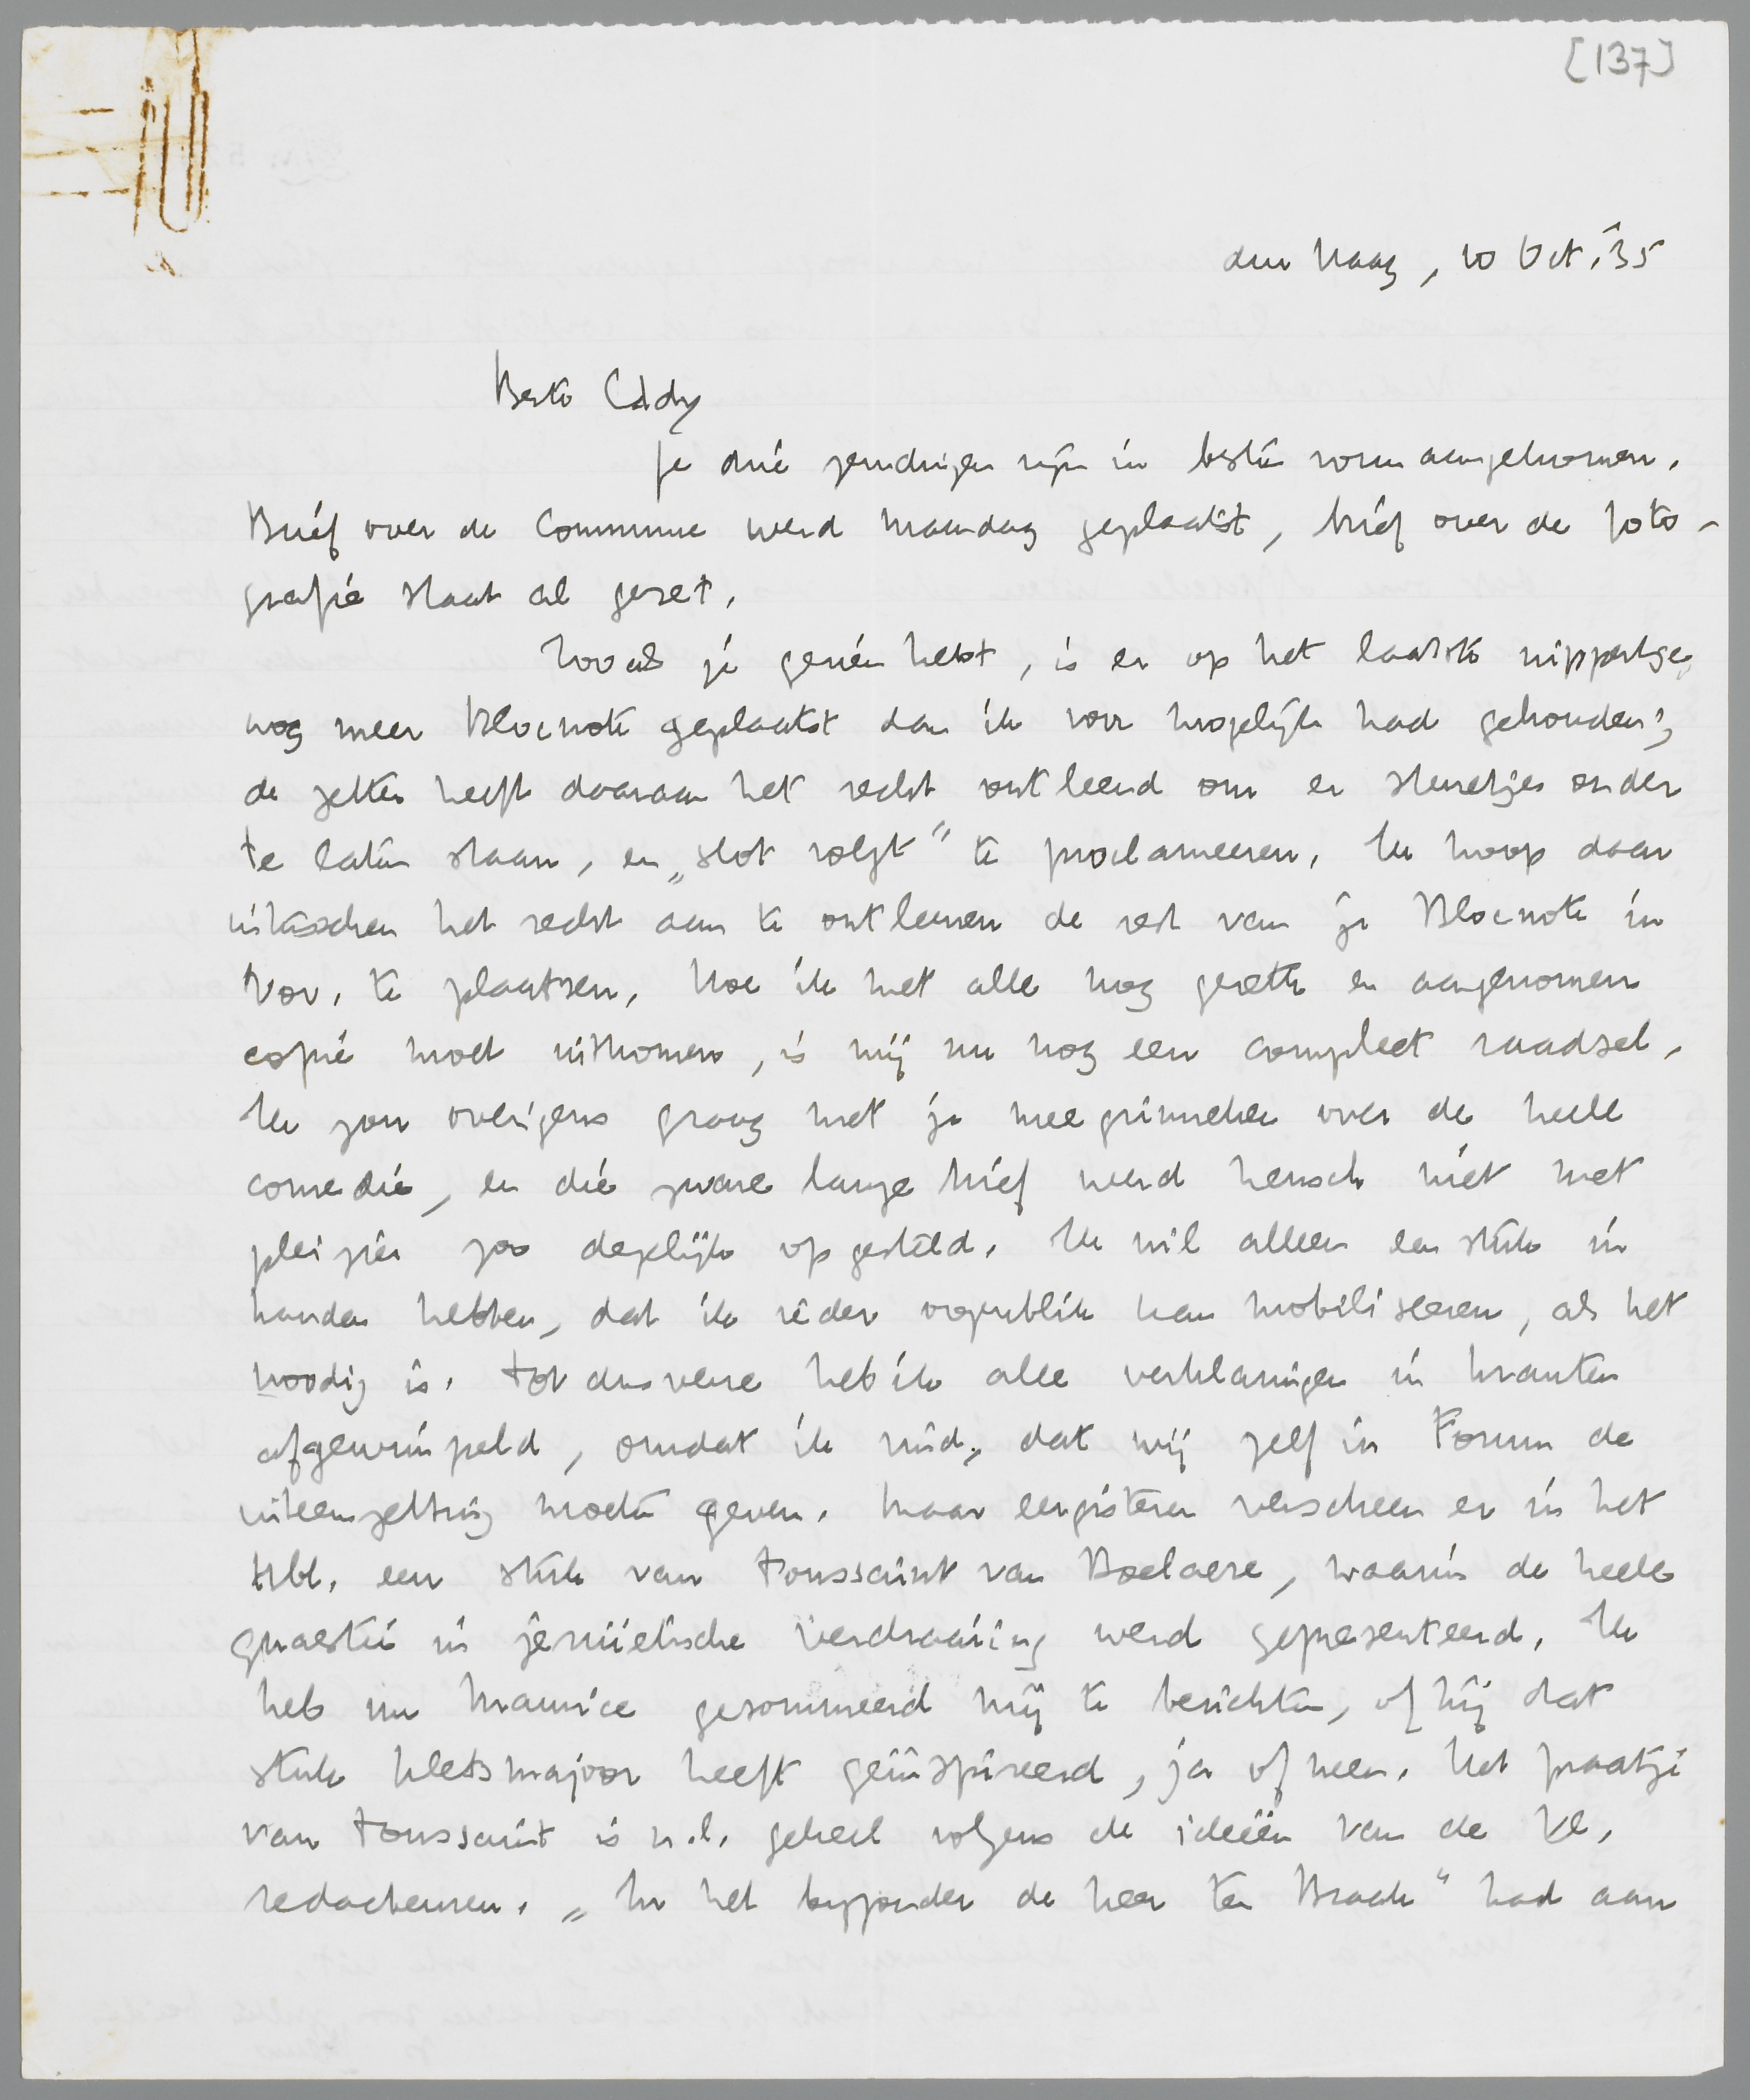 [137]
den Haag, 10 Oct. '35
Beste Eddy
Je drie zendingen zijn in besten vorm aangekomen.
Brief over de Commune werd Maandag geplaatst, brief over de foto-
grafie staat al gezet.
Zooals je gezien hebt, is er op het laatste nippertje
nog meer Blocnote geplaatst dan ik voor mogelijk had gehouden;
de zetter heeft daaraan het recht ontleend om er sterretjes onder
te laten staan, en „slot volgt" te proclameeren. Ik hoop daar
intusschen het recht aan te ontleenen de rest van je Blocnote in
Nov. te plaatsen. Hoe ik met alle nog gezette en aangenomen
copie moet uitkomen, is mij nu nog een compleet raadsel.
Ik zou overigens graag met je meegrinneken over de heele
comedie, en die zware lange brief werd heusch niet met
pleizier zoo degelijk opgesteld. Ik wil alleen een stuk in
handen hebben, dat ik ieder oogenblik kan mobiliseeren, als het
noodig is. Tot dusverre heb ik alle verklaringen in kranten
afgewimpeld, omdat ik vind, dat wij zelf in Forum de
uiteenzetting moeten geven. Maar eergisteren verscheen er in het
Hbl. een stuk van Toussaint van Boelaere, waarin de heele
quaestie in jezuïetische verdraaiing werd gepresenteerd. Ik
heb nu Maurice gesommeerd mij te berichten, of hij dat
stuk kletsmajoor heeft geïnspireerd, ja of neen. Het praatje
van Toussaint is n.l. geheel volgens de ideeën van de Vl.
redacteuren. „In het bijzonder de heer Ter Braak" had aan